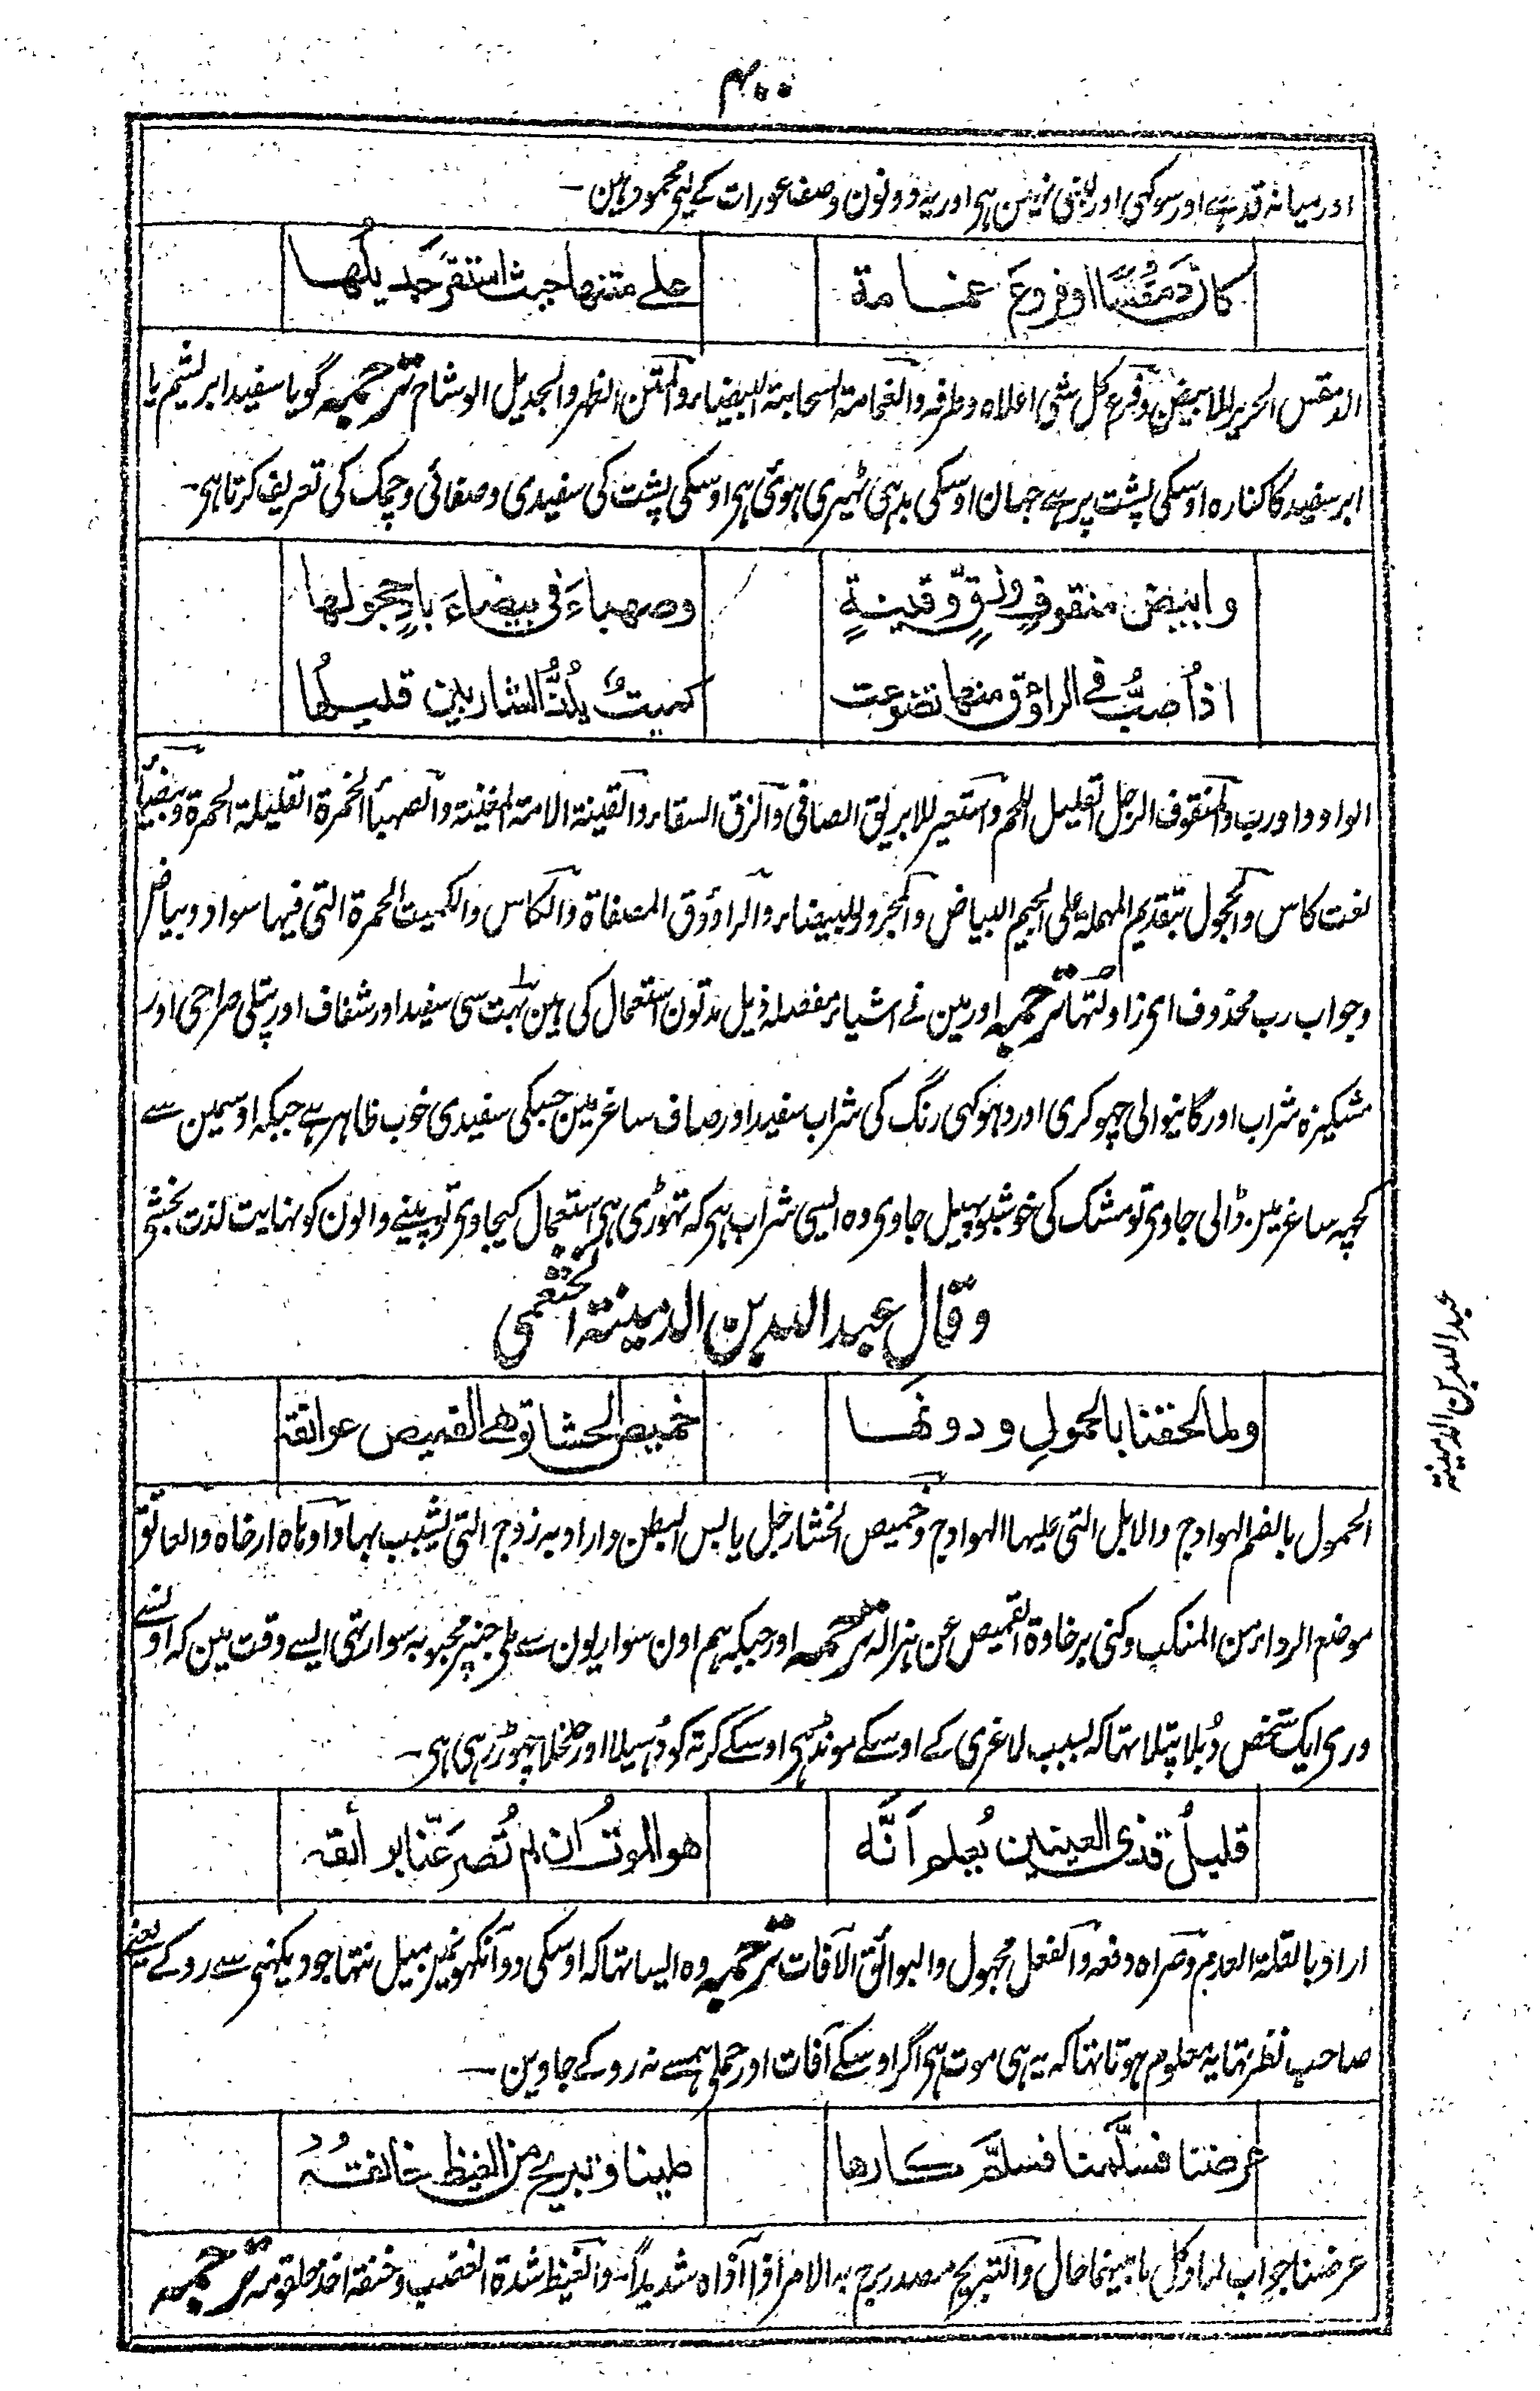 ۴۰۰
اور میانہ قد ہے اور سوکھی اور لنبی نہین ہی اور یہ دونون وصف عورات کے لیے محمود ہین ۔
كانّ دمقسًا او فروع غمامة علے متنها حيث استقر جديلُها
الدمقس الحریر الابیض وفرع کل شئی اعلاہ وطرفہ والغمامۃ السحابۃ البیضاء والمتن الظہر والجدیل الوشاح ترجمہ گویا سفید ابریشم یا
ابر سفید کا کنارہ اوسکی پشت پر ہے جہان اوسکی بدہی ٹہیری ہوئی ہی اوسکی پشت کی سفیدی وصفائی وچمک کی تعریف کرتا ہی ۔
وابيض منقوفٍ وزقٍّ وقينةٍ وصهباءَ فى بيضاءَ بادٍ حجولها
اذا صُبَّ فے الراوُوق منها تضوعت كميتٌ يُلذُّ الشاربين قليلُها
الواو واو رب والمنقوف الرجل القلیل اللحم واستعیر للابریق الصافی والزق السقاء والقینۃ الامۃ المغنیۃ والصہباء الخمرۃ القلیلۃ الحمرۃ وبیضاء
نعت کاس والحجول بتقدیم المہملۃ علی الجیم البیاض والمجرور للبیضاء والراووق المصفاۃ والکاس والکمیت الحمرۃ التی فیہا سواد وبیاض
وجواب رب محذوف ای زاولتہا ترجمہ اور مین نے اشیاء مفصلہ ذیل مدتون استعمال کی ہین بہت سی سفید اور شفاف اور پتلی صراحی اور
مشکیزہ شراب اور گانیوالی چہوکری اور دہوکی رنگ کی شراب سفید اور صاف ساغر مین جسکی سفیدی خوب ظاہر ہے جبکہ اوسمین سے
کچہہ ساغر مین ڈالی جاوی تو مشک کی خوشبو پہیل جاوی وہ ایسی شراب ہی کہ تہوڑی ہی استعمال کیجاوی تو پینے والون کو نہایت لذت بخشی
وقال عبد اللہ بن الدمینۃ الخثعمی
عبد اللہ بن الدمینۃ
ولما لحقنا بالحمولِ ودونها خميص الحشا توهے القميص عواتقه
الحمول بالضم الہوادج والابل التی علیہا الہوادج وخمیص الحشا رجل یابس البطن واراد بہ زوج التی یشبب بہا واوہاہ ارخاہ والعاتق
موضع الرداء من المنکب وکنی برخاوۃ القمیص عن ہزالہ ترجمہ اور جبکہ ہم اون سواریون سے ملی جنپر محبوبہ سوار تہی ایسے وقت مین کہ اونسے
وری ایک شخص دُبلا پتلا تہا کہ بسبب لاغری کے اوسکے مونڈہی اوسکے کرتہ کو ڈہیلا اور چہوڑ رہی ہی ۔
قليلُ قذى العينين يُعلم اَنَّه هو الموتُ ان لم تُصرَ عنّا بوائقه
اراد بالقلۃ العدم وصراہ دفعہ والفعل مجہول والبوائق الآفات ترجمہ وہ ایسا تہا کہ اوسکی دو آنکہونمین میل نتہا جو دیکہنی سے روکے یعنے
صاحب نظر تہا یہ معلوم ہوتا تہا کہ یہ ہی موت ہی اگر اوسکے آفات اور حملی ہمسے نہ روکے جاوین ۔
عرضنا فسلَّمنا فسلّم كارها علينا وتبريح من الغيظ خانقُهُ
عرضنا جواب لما وکل ما بینہما حال والتبریح مصدر برح بہ الامر اذا آذاہ شدیداً والغیظ شدۃ الغضب وخنقہ اخذ حلقومہ ترجمہ